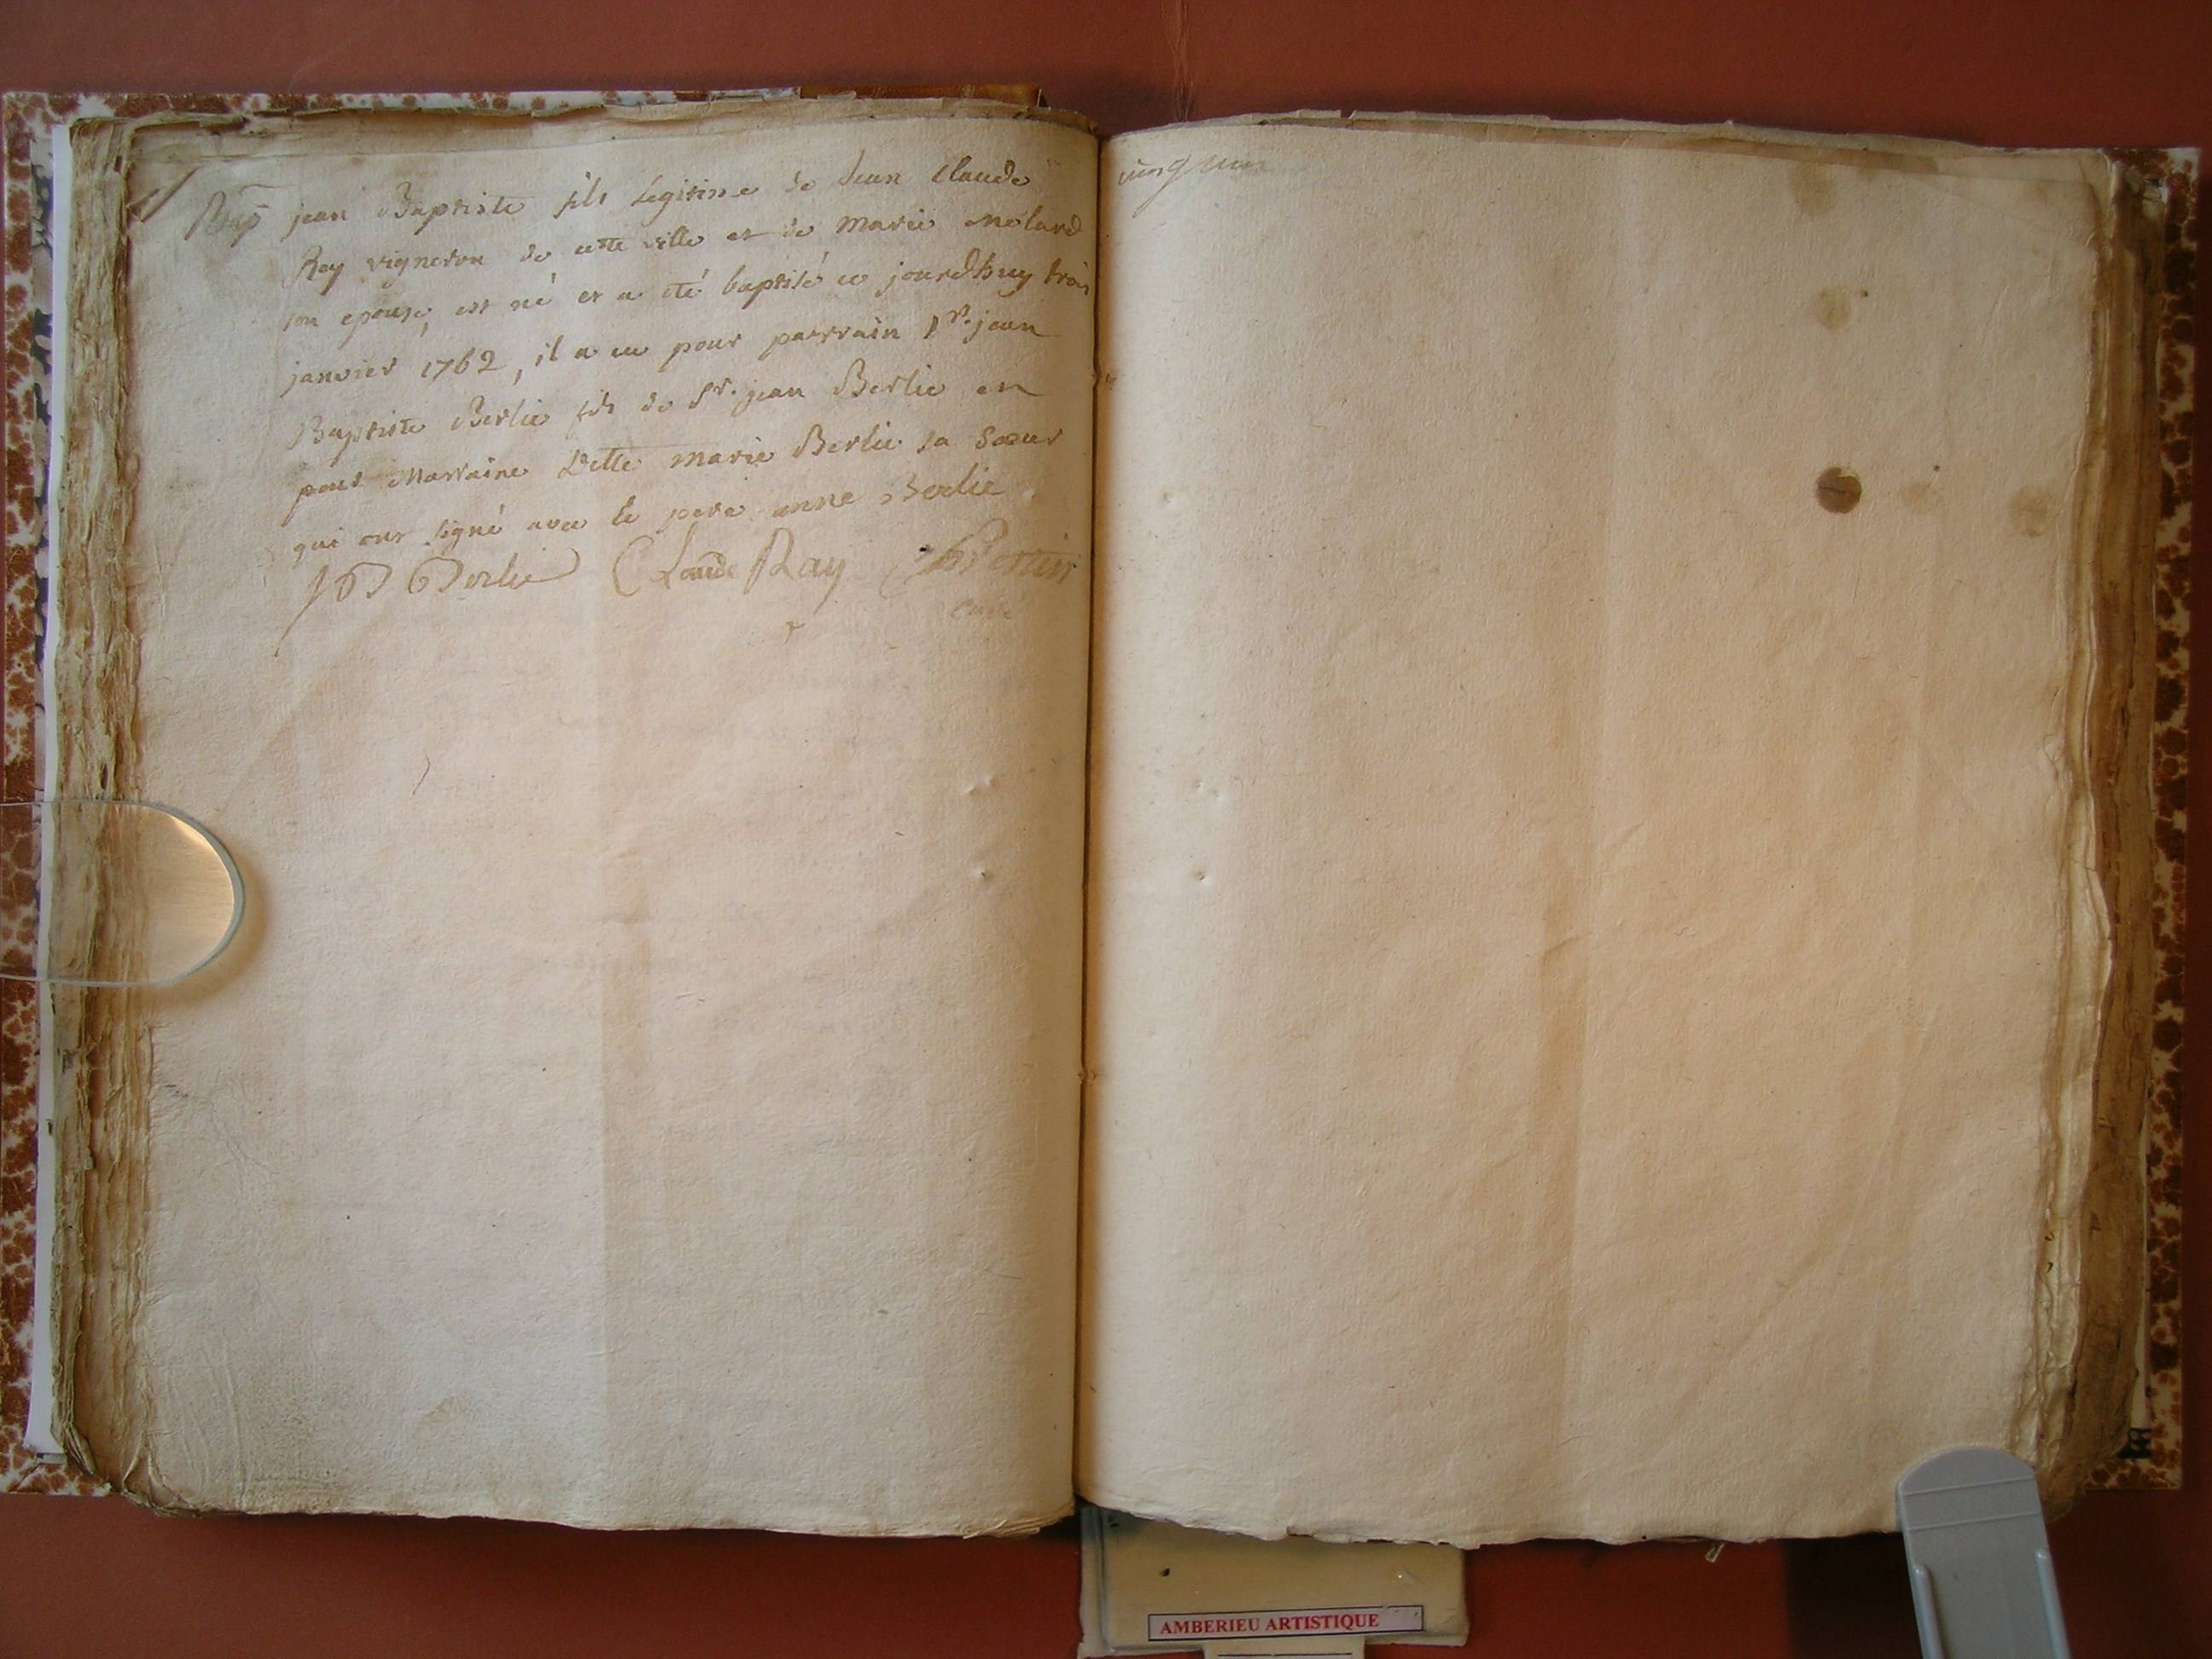 Bap jean Baptiste fils Legitime de Jean Claude
Rey vigneron de cette ville et de Marie Molard
son epouse, est né et a été baptisé ce jourdhuy trois
janvier 1762, il a eu pour parrain Sr. jean
Baptiste Berlie fils de Sr. jean Berlie et
pour Marraine Delle marie Berlie sa Soeur
qui ont signé avec le pere anne Berlie
JB Berlie Claude Ray
curé
AMBERIEU ARTISTIQUE